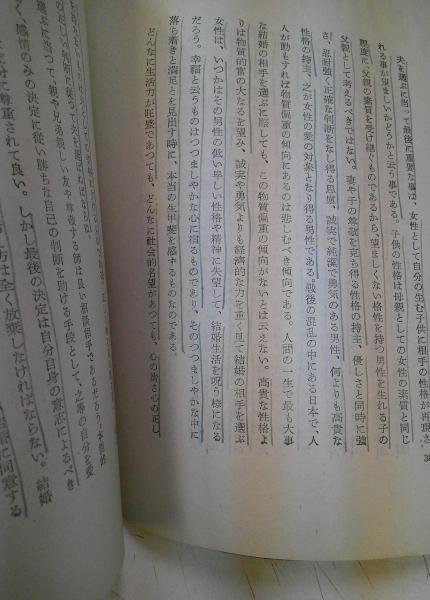 夫を選ぶに当って最後に重要な事は、女性として自分の生む子供に相手の性格が再現さ
れる事が望ましいかどうかと云う事である。子供の性格は母親としての女性の素質と同じ
程度に、父親の素質を受け継ぐものであるから、望ましくない格性を持つ男性を生れる子の
父親として考えるべきではない。妻や子の尊敬を克ち得る性格の持主、優しさと同時に強
さ、忍耐強く正確な判断をなし得る思慮、誠実で純潔で勇気のある男性、何よりも高貴な
性格の持主、之が女性の愛の対象となり得る男性である。戦後の混乱の中にある日本で、人
人が動もすれば物質偏重の傾向にあるのは悲しむべき傾向である。人間の一生で最も大事
な結婚の相手を選ぶに際しても、この物質偏重の傾向がないとは云えない。高貴な性格よ
りは物質的富の大なるを望み、誠実や勇気よりも経済的な力を重く見て結婚の相手を選ぶ
女性は、いつかはその男性の低い卑しい性格や精神に失望して、結婚生活を呪う様になる
だろう。幸福と云うものはつつましやかな心に宿るものであり、そのつつましやかな中に
落ち着きと満足とを見出す時に、本当の生甲斐を感ずるものなのである。
どんなに生活力が旺盛であつても、どんなに社会的名望があつても、心の清さ心の正し
選ぶに当つて、親や兄弟親、いい友や尊敬する師は良い相談相手であるだろう。
感情のみの決定に従い勝ちな自己の判断を助ける手段として、之等の自分を愛
尊重されて良い。しかし最後の決定は自分自身の意志によるべき
は全く放棄しなければならない。結婚
に同意する